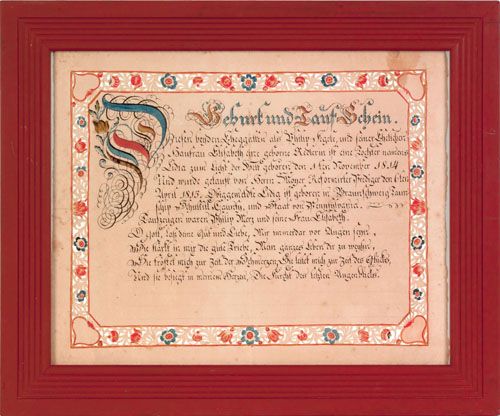 Geburt und Tauf-Schein.
Diesen beyden Ehegatten als Philip Fegele und seiner Ehelichen
Hausfrau Elisabeth eine geborne Rederin ist eine Tochter namens
Lidia zum Licht der Welt geboren den 14ten November 1814
Und wurde getauft von Herrn Moyer Reformirter Prediger den
April 1815. Obiggemeldte Lidia ist geboren in Braunschweig Taun-
schip Schuilkil Caunty, und Staat von Pennsylvania.
Taufzeugen waren Philip Merz und seine Frau Elisabeth.
O Gott, laß deine Güt und Liebe, Mir immerdar vor Augen seyn,
Sie stärk in mir die gute Triebe, Mein ganzes Leben dir zu weyhn,
Sie tröstet mich zur Zeit der Schmerzen, Sie leitet mich zur Zeit des Glücks,
Und sie besiegt in meinem Herzen, Die Furcht des letzten Augenblicks.